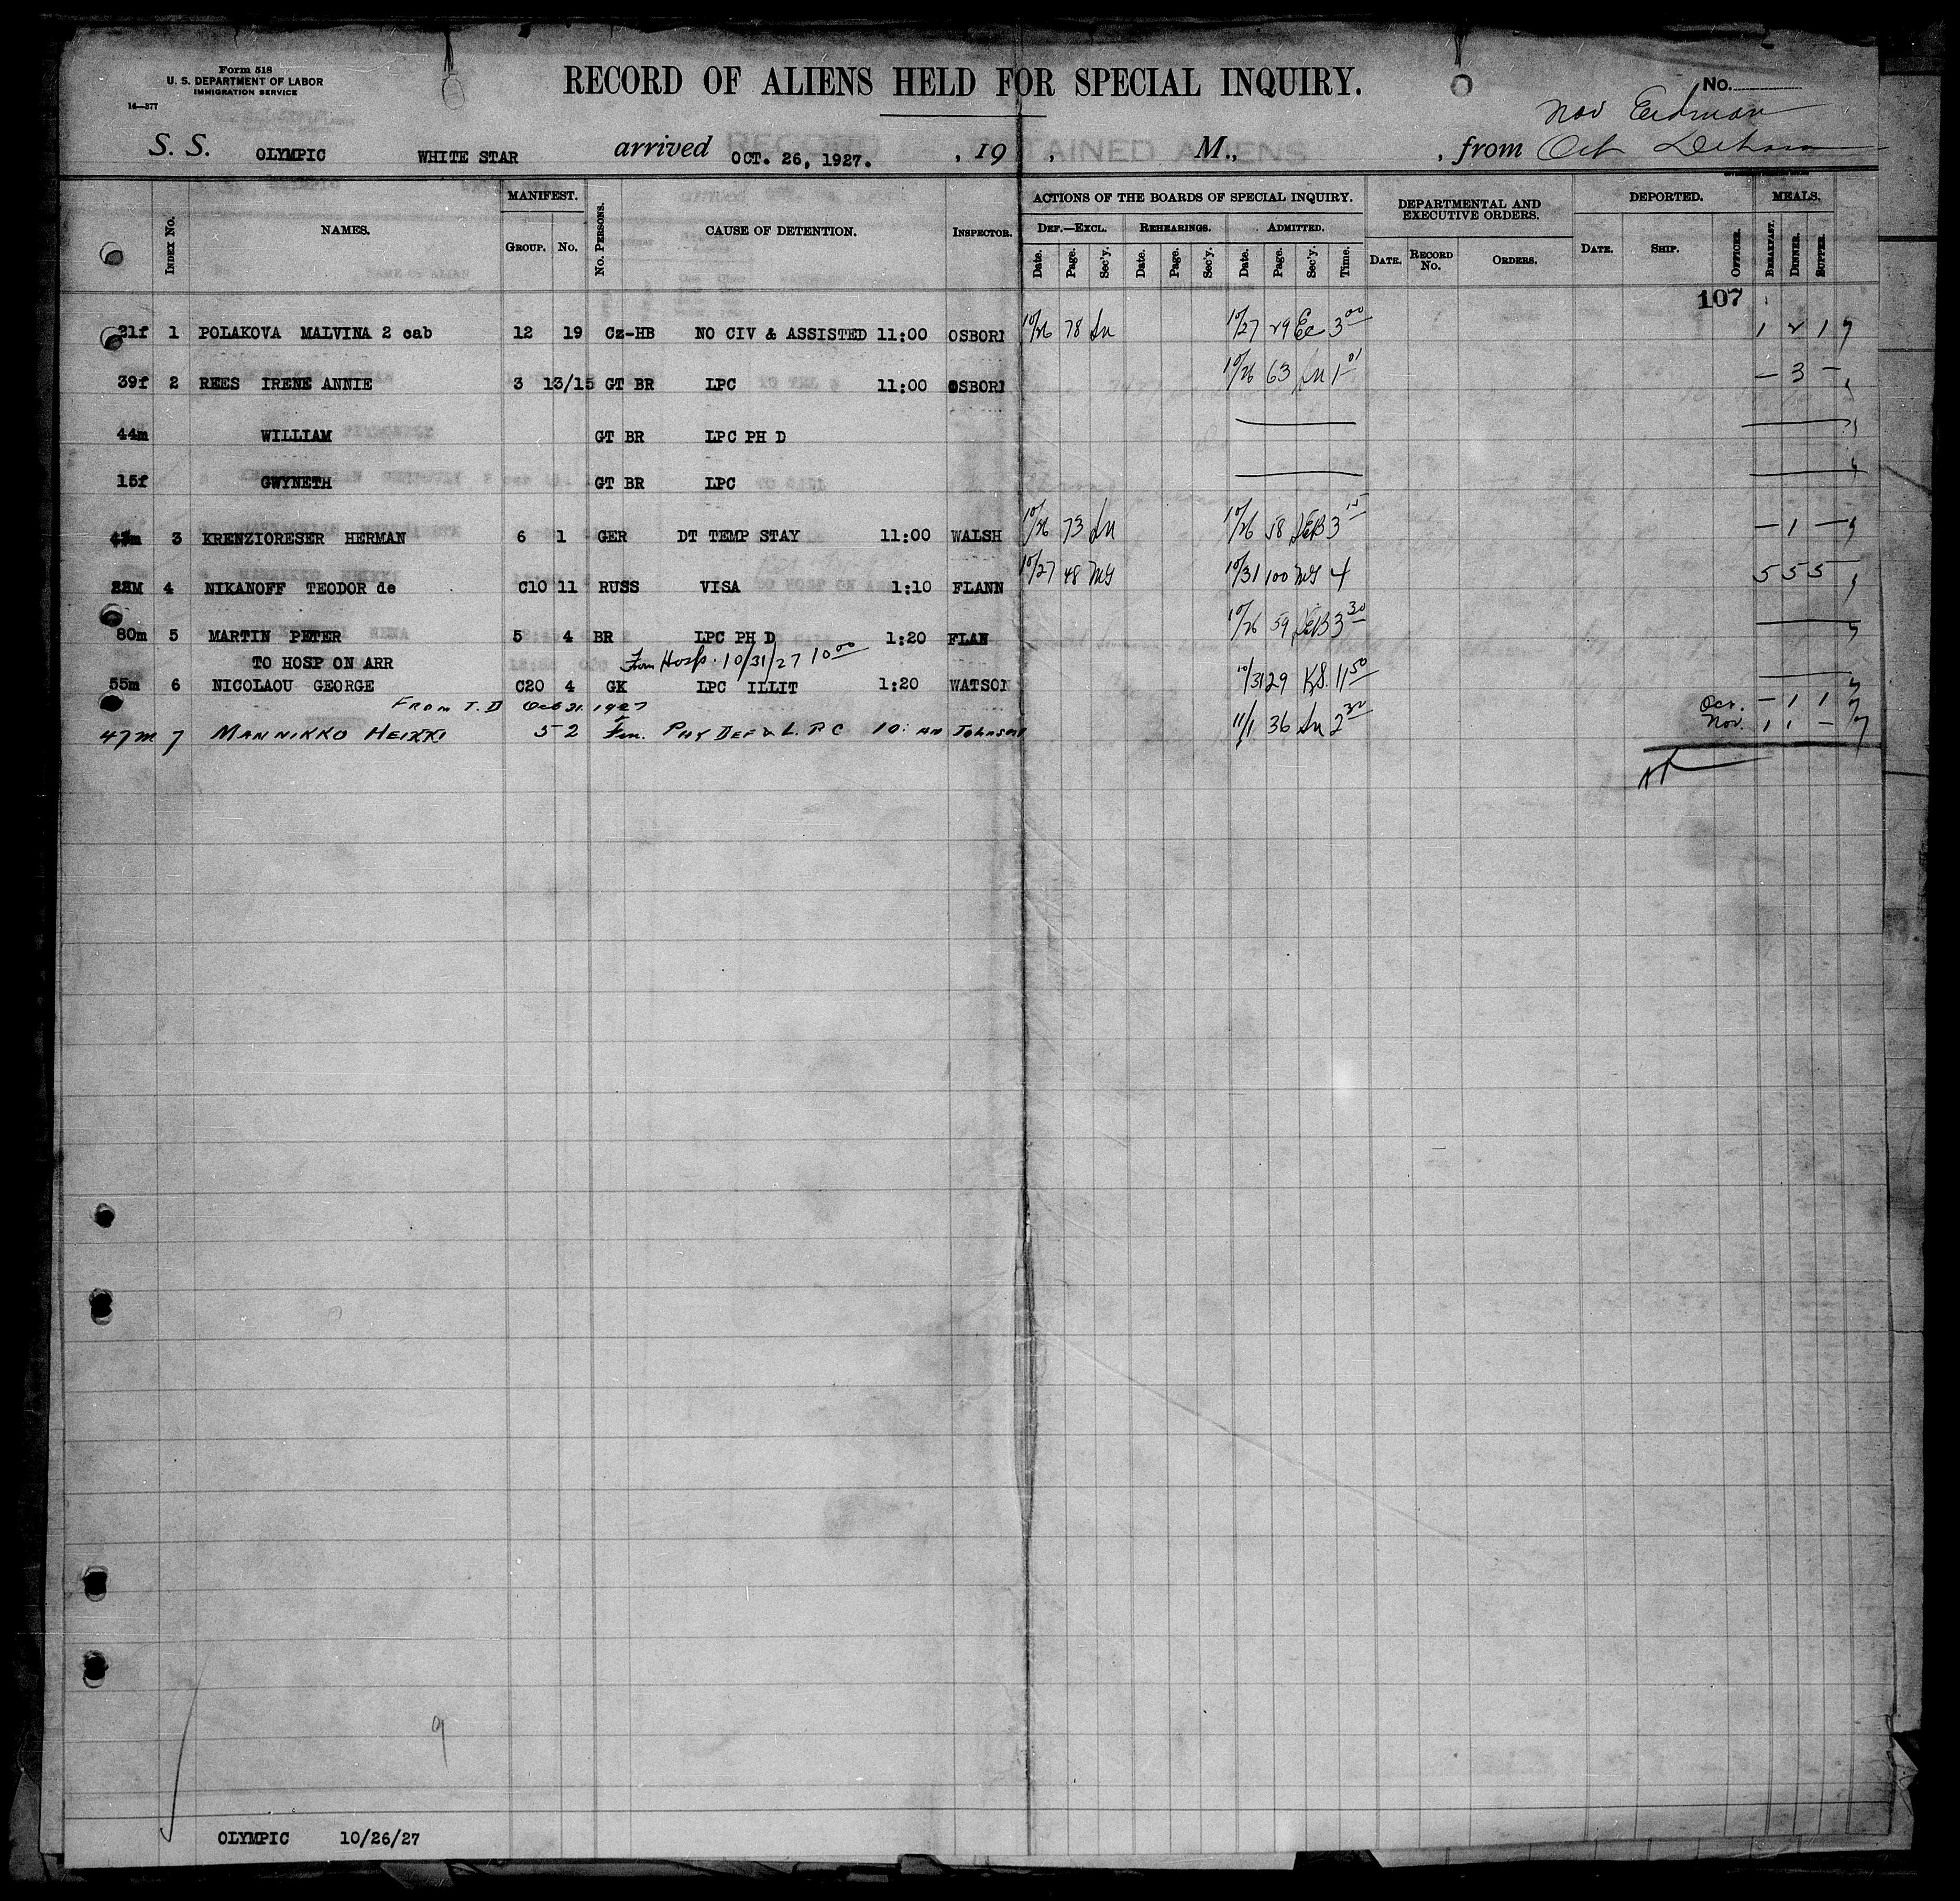 Form 518
U. S. DEPARTMENT OF LABOR
IMMIGRATION SERVICE
14—377
RECORD OF ALIENS HELD FOR SPECIAL INQUIRY.
No.
Nov Erdman
S. S. OLYMPIC WHITE STAR arrived OCT. 26, 1927. , 19 , M., , from Oct
INDEX No. NAMES. MANIFEST. GROUP. No. No. PERSONS. CAUSE OF DETENTION. INSPECTOR. ACTIONS OF THE BOARDS OF SPECIAL INQUIRY. DEF.—EXCL. Date. Page. Sec'y. REHEARINGS. Date. Page. Sec'y. ADMITTED. Date. Page. Sec'y. Time. DEPARTMENTAL AND EXECUTIVE ORDERS. DATE. RECORD No. ORDERS. DEPORTED. DATE. SHIP. OFFICER. MEALS. BREAKFAST. DINNER. SUPPER.
107
21f 1 POLAKOVA MALVINA 2 cab 12 19 Cz-HB NO CIV & ASSISTED 11:00 OSBORN 10/26 78 Sn 10/27 29 Ec 3 00 1 2 1
39f 2 REES IRENE ANNIE 3 13/15 GT BR LPC 11:00 OSBORN 10/26 63 Sn 1 01 — 3 —
44m WILLIAM GT BR LPC PH D
15f GWYNETH GT BR LPC
3 KRENZIORESER HERMAN 6 1 GER DT TEMP STAY 11:00 WALSH 10/26 73 Sn 10/26 58 DEB 3 15 — 1 —
22M 4 NIKANOFF TEODOR de C10 11 RUSS VISA 1:10 FLANN 10/27 48 MG 10/31 100 MG 4 5 5 5
80m 5 MARTIN PETER 5 4 BR LPC PH D 1:20 FLAN 10/26 59 DEB 3 30
TO HOSP ON ARR From Hosp. 10/31/27 10 00
55m 6 NICOLAOU GEORGE C20 4 GK LPC ILLIT 1:20 WATSON 10/31 29 KS. 11 50
FROM T. D Oct 31. 1927 Oct. — 1 1
47m 7 MANNIKKO HEIKKI 5 2 Fin. PHY DEF & L. P C 10: AM Johnson 11/1 36 Sn 2 30 Nov. 1 1 —
9
OLYMPIC 10/26/27